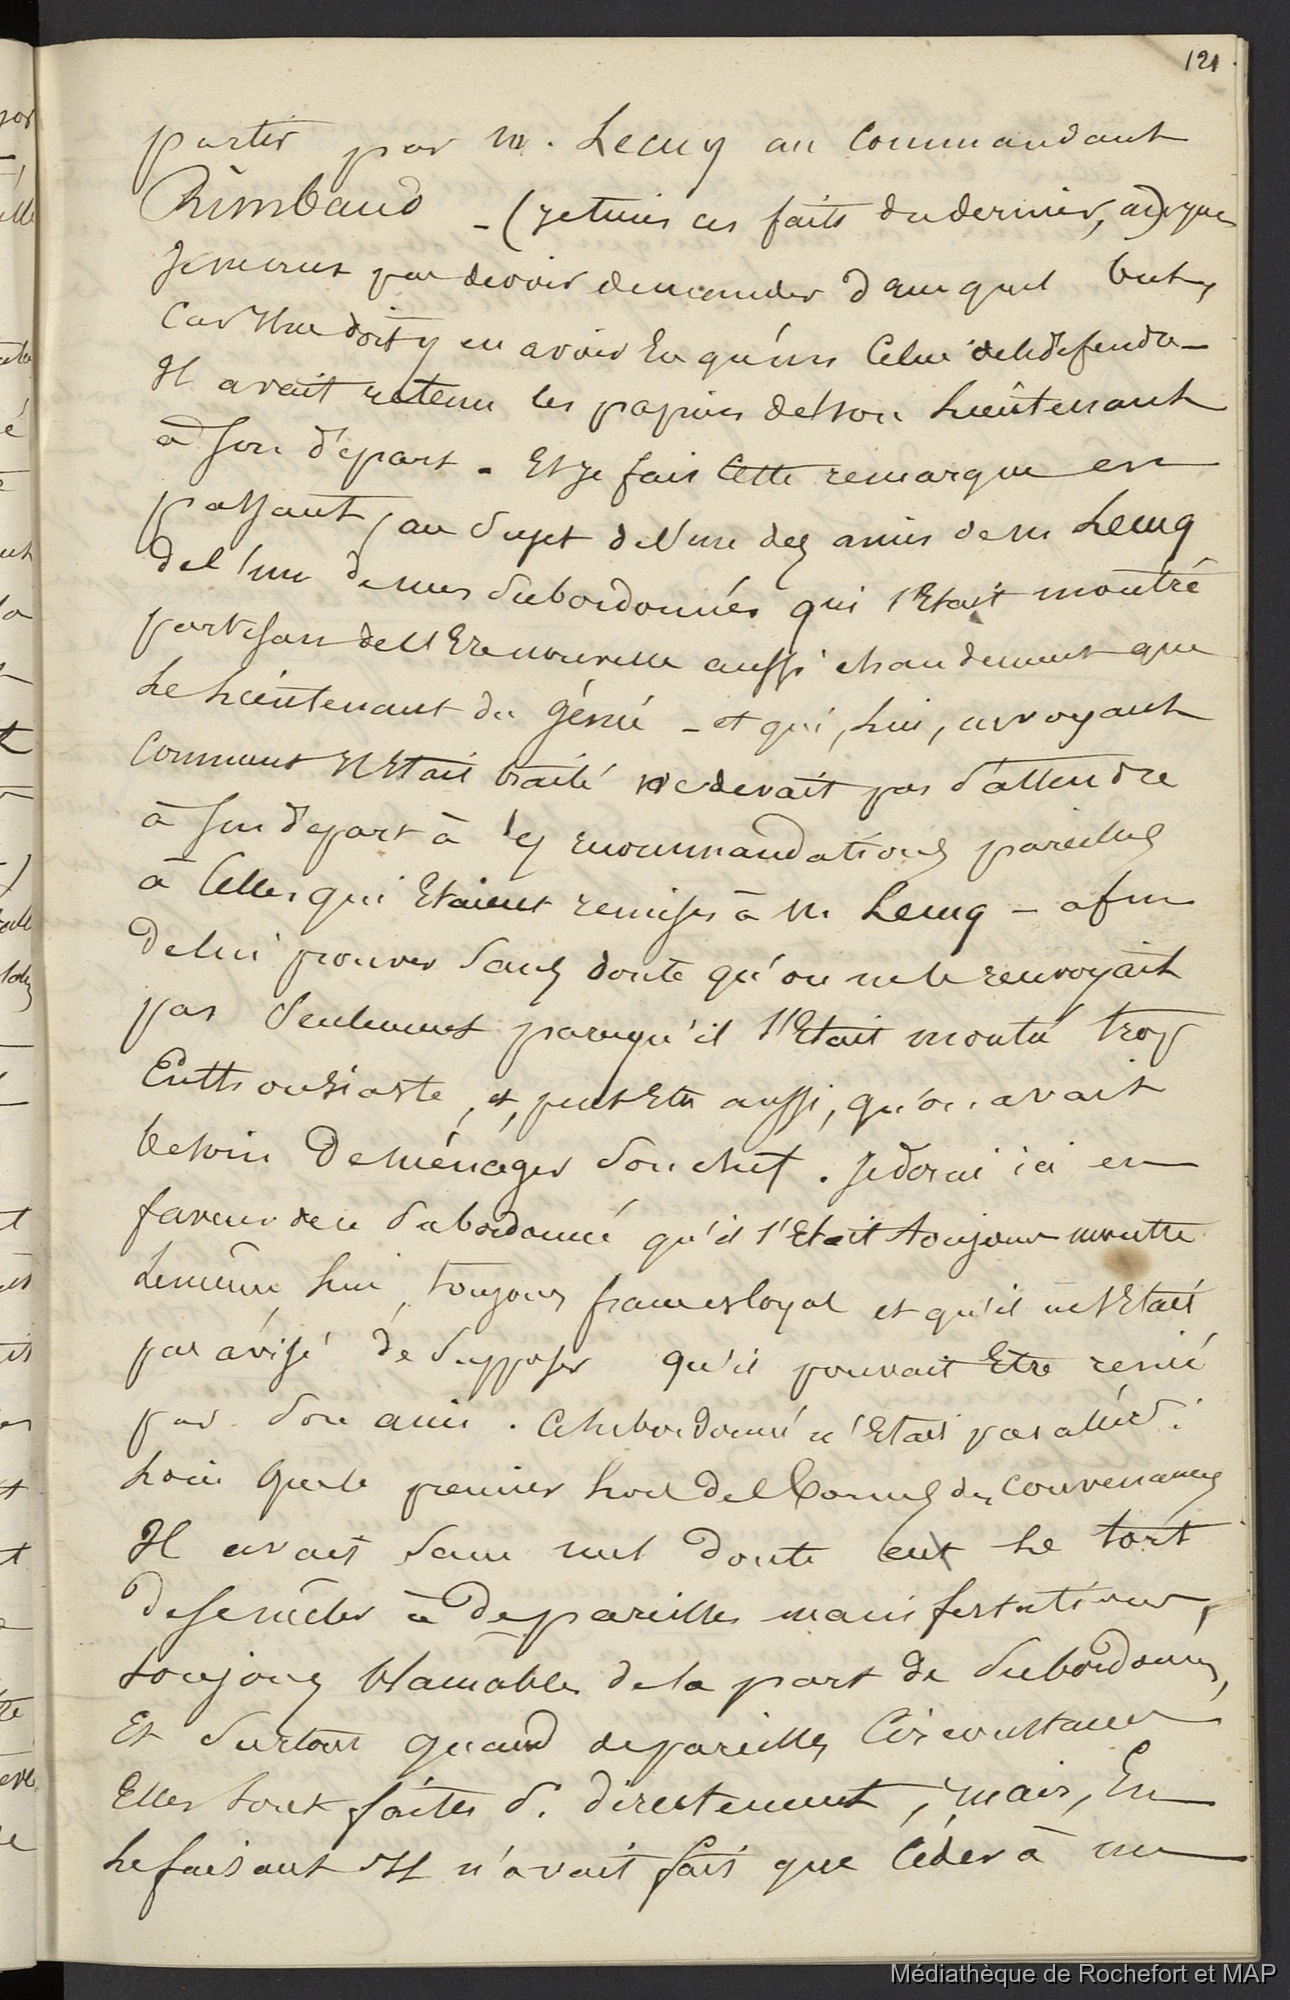 121
partir par m. Lecuy au Commandant
Rimbaud - (je tiens ces faits du dernier,
Je ne crus pas devoir demander dans quel but,
Car il ne doit y en avoir Eu qu'un Celui de le défendre -
Il avait retenu les papiers de son Lieutenant
à son départ. - Et je fais Cette remarque en
passant, au sujet de l'un des amis de m Lecuq
de l'un de mes Subordonnés qui s'Etait montré
partisan de l'Ere nouvelle aussi chaudement que
Le Lieutenant du génie - et qui, lui, envoyant
comment il Etait traité ne devait pas s'attendre
à son départ à des recommandations pareilles
à Celles qui Etaient remises à m. Lecuq - afin
de lui prouver Sans doute qu'on ne le renvoyait
pas Seulement parcequ'il s'Etait montré trop
Enthousiaste, et, peut Etre aussi, qu'on avait
besoin De ménager Son chef. Je dirai ici en
faveur de ce Subordonné qu'il s'Etait toujours montré
Le même lui, toujours franc et loyal et qu'il ne s'Etait
pas avisé de Supposer qu'il pouvait Etre renié
par Son ami. Ce Subordonné n'Etait pas allé
Loin que le premier hors des bornes des convenances
Il avait Sans nul doute eut Le tort
de se mêler à De pareilles manifestations,
toujours blamables de la part de Subordonnés,
Et Surtout quand de pareilles Circonstances
Elles sont faites S. directement, mais, En
Le faisant Il n'avait fait que Céder à un
Médiathèque de Rochefort et MAP